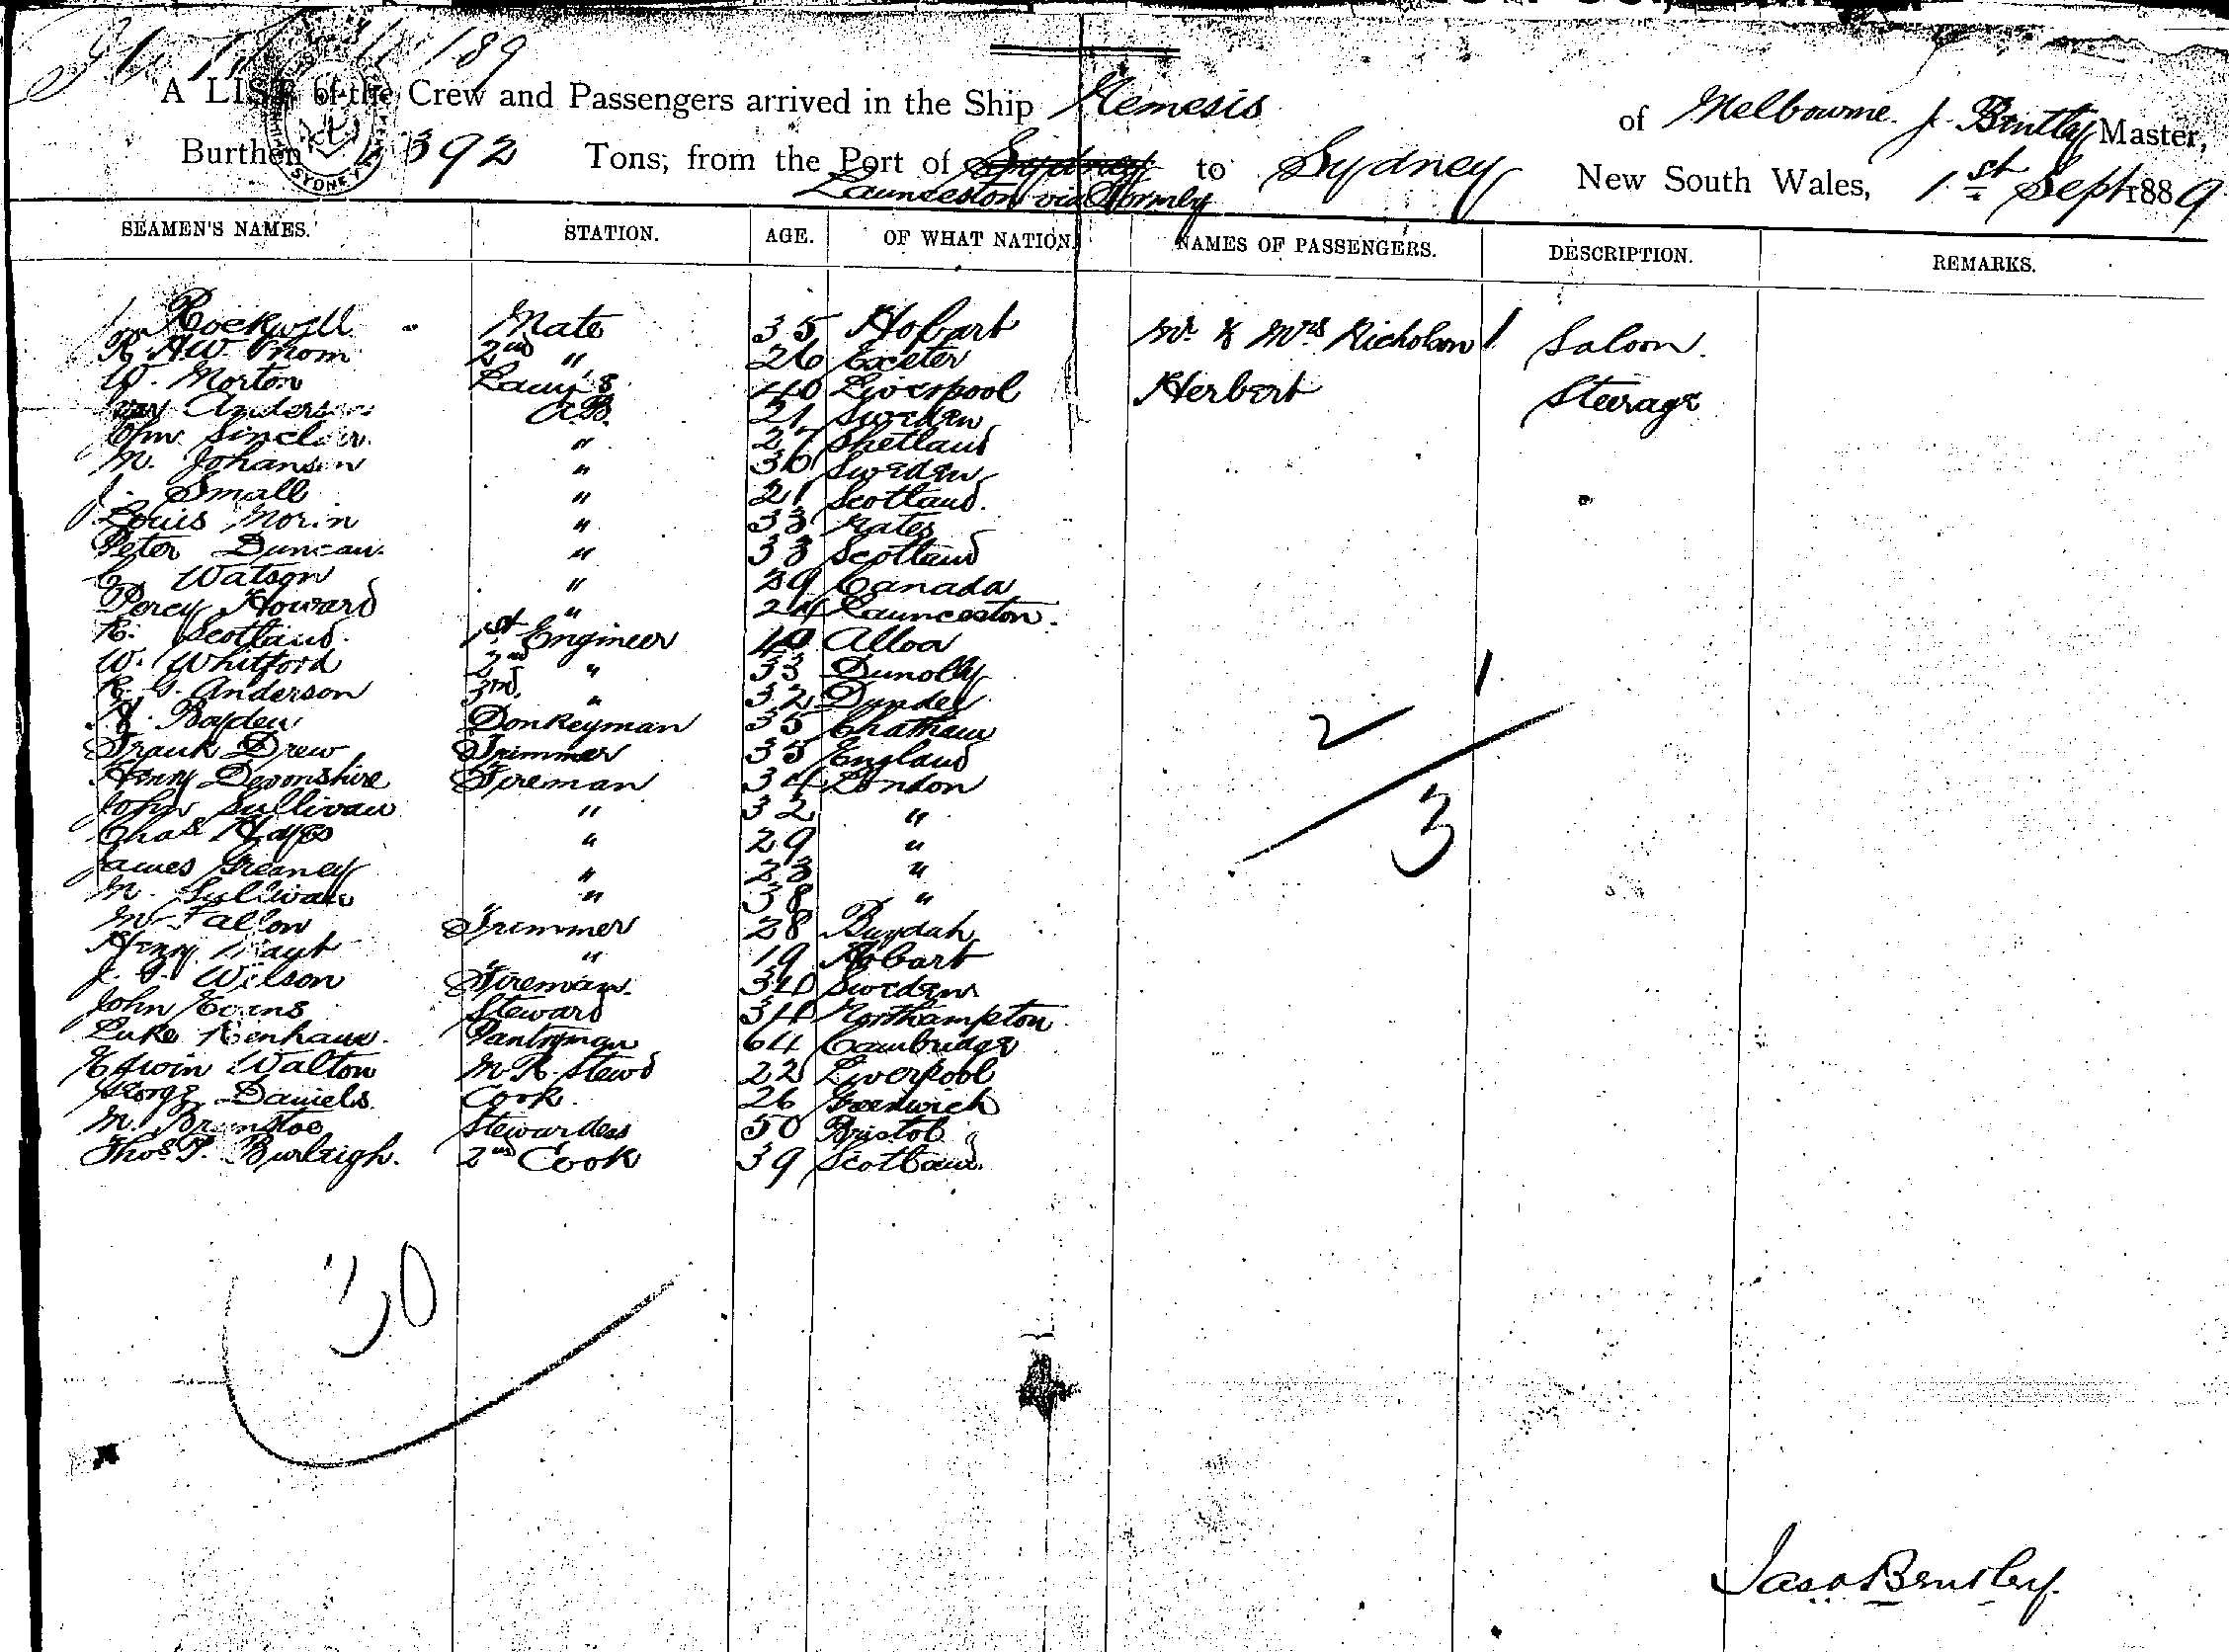 189
A LIST of the Crew and Passengers arrived in the Ship Nemesis of Melbourne. J. Bentley Master,
Burthen 392 Tons, from the Port of Sydney to Sydney New South Wales, 1st Sept 1889
Launceston via Formby
SEAMEN'S NAMES. STATION. AGE. OF WHAT NATION. NAMES OF PASSENGERS. DESCRIPTION. REMARKS.
Rockwell Mate 35 Hobart Mr & Mrs Nicholson 1 Saloon.
R. H. W. 2nd " 26 Exeter
W. Morton Lamps 40 Liverpool Herbert Steerage
Anderson A.B. 21 Sweden
John Sinclair " 27 Shetland
M. Johanson " 36 Sweden
J. Small " 21 Scotland.
Louis Morin " 33
Peter Duncan " 33 Scotland
C. Watson " 29 Canada
Percy Howard " 24 Launceston.
R. Scotland 1st Engineer 40 Alloa
W. Whitford 2nd " 33 Dunolly
R. G. Anderson 3rd " 32 Dundee
Boyden Donkeyman 35 Chatham
Frank Drew Trimmer 35 England
Henry Devonshire Fireman 34 London
John Sullivan " 32 "
Chas Hayes " 29 "
James Greaney " 23 "
M. Sullivan " 38 "
M Fallon Trimmer 28
Henry " 19 Hobart
J. G. Wilson Fireman 30 Sweden
John Evans Steward 34 Northampton
Luke Pantryman 64 Cambridge
Edwin Walton M. R. Stewd 22 Liverpool
George Daniels Cook 26 Greenwich
M. Stewardess 50 Bristol
Thos P. Burleigh. 2nd Cook 39 Scotland.
2 1
3
30
Jas Bentley.